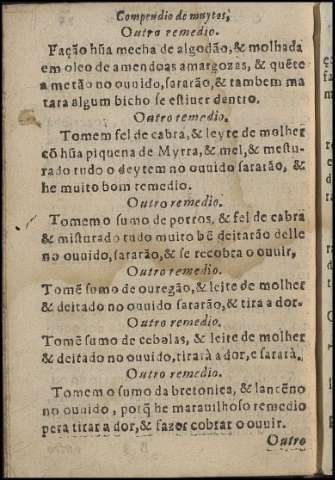 Compendio de muytos,
Outro remedio.
Fação hũa mecha de algodão, & molhada
em oleo de amendoas amargozas, & quẽte
a metão no ouuido, ſararão, & tambem ma
tara algum bicho ſe eſtiuer dentro.
Outro remedio.
Tomem fel de cabra, & leyte de molher
cõ hũa piquena de Myrra, & mel, & meſtu-
rado tudo o deytem no ouuido ſararão, &
he muito bom remedio.
Outro remedio.
Tomem o ſumo de porros, & fel de cabra
& miſturado tudo muito bẽ deitarão delle
no ouuido, ſararão, & ſe recobra o ouuir,
Outro remedio.
Tomẽ ſumo de ouregão, & leite de molher
& deitado no ouuido ſararão, & tira a dor.
Outro remedio.
Tomẽ ſumo de cebolas, & leite de molher
& deitado no ouuido, tirarà a dor, e ſararà.
Outro remedio.
Tomem o ſumo da bretonica, & lancẽno
no ouuido, porq̃ he marauilhoſo remedio
pera tirar a dor, & fazer cobrar o ouuir.
Outro